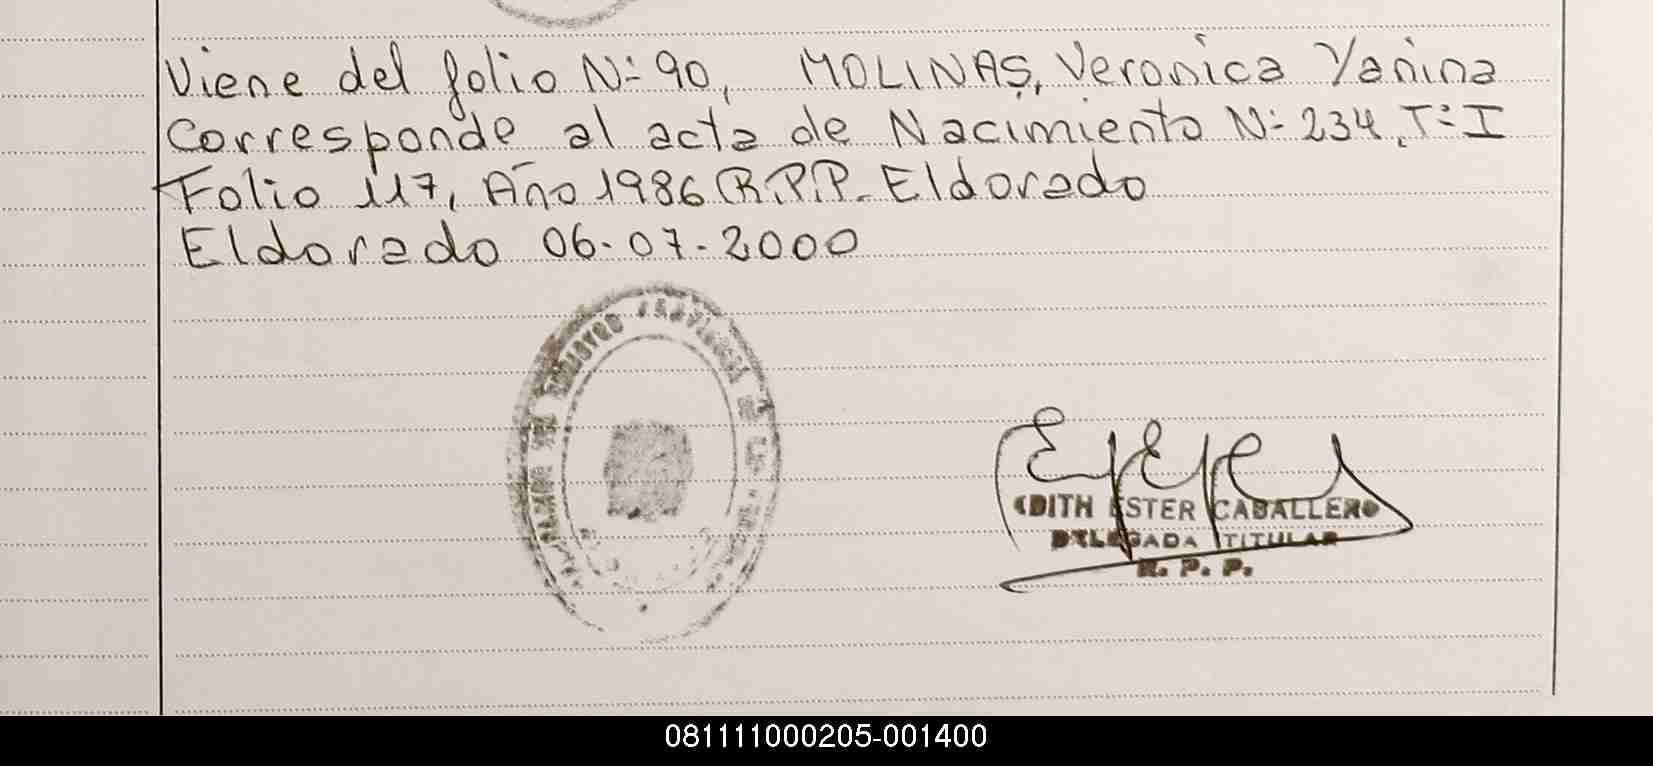 Viene del folio Nº 90, MOLINAS, Veronica Yanina
Corresponde al acta de Nacimiento Nº 234, Tº I
Folio 117, Año 1986 R.P.P. Eldorado
Eldorado 06-07-2000
EDITH ESTER CABALLERO
DELEGADA TITULAR
R. P. P.
081111000205-001400